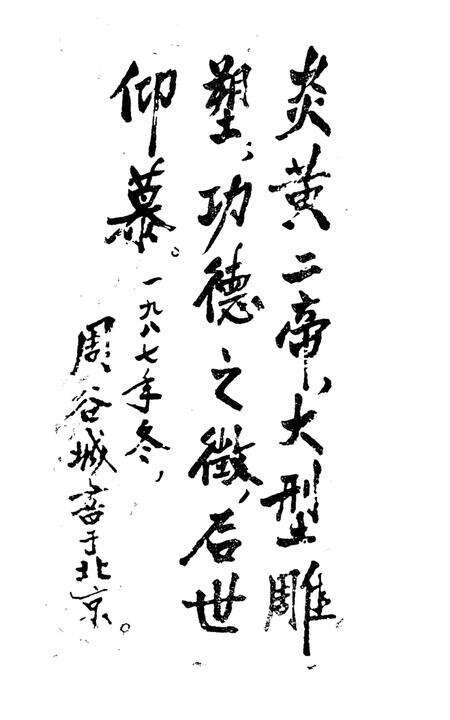 炎黄二帝，大型雕
塑，功德之徵，后世
仰慕。一九八七年冬，
周谷城書于北京。